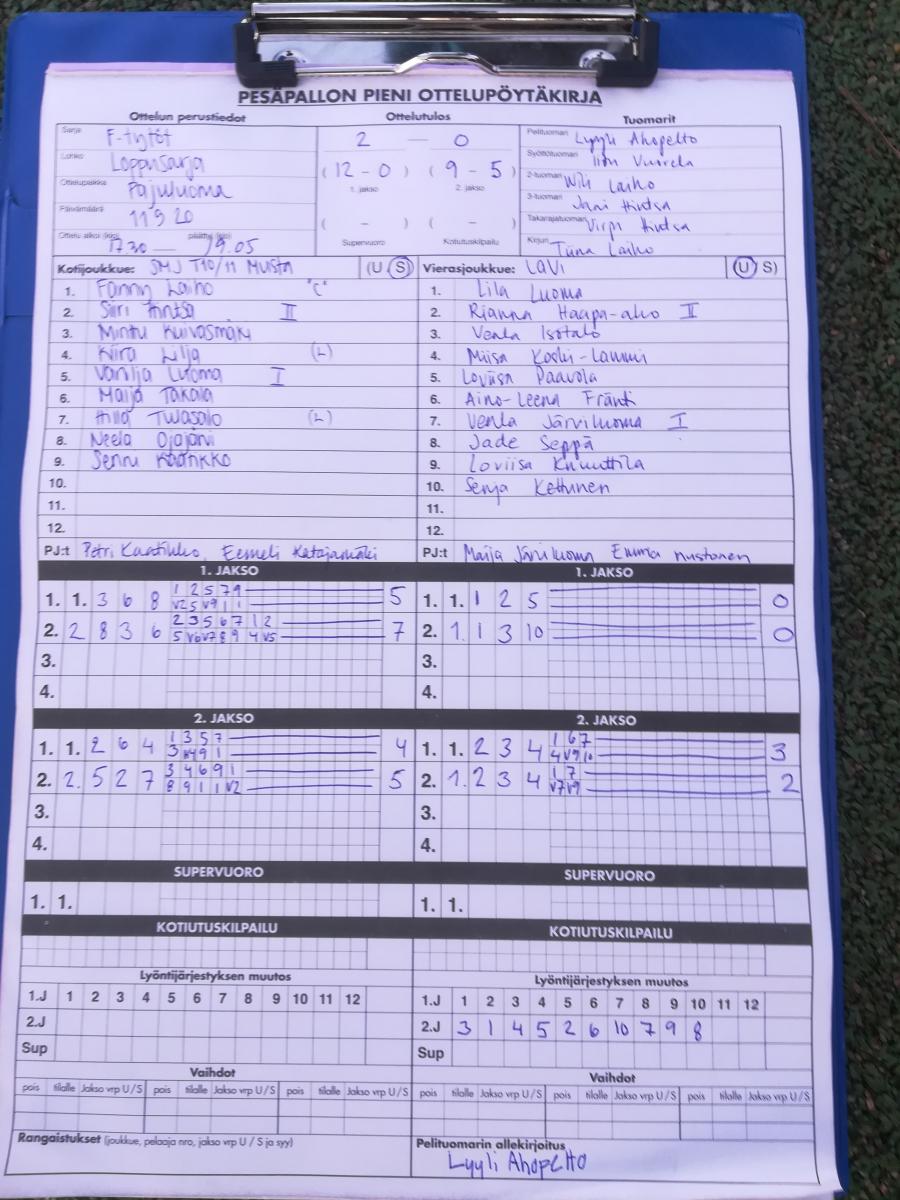 PESÄPALLON PIENI OTTELUPÖYTÄKIRJA
Ottelun perustiedot Ottelutulos Tuomarit
Sarja F-tytöt
Lohko Loppusarja
Ottelupaikka Pajuluoma
Päivämäärä 11 9 20
Ottelu alkoi (klo) 17.30 — päättyi (klo) 19.05
2 — 0
( 12 - 0 ) ( 9 - 5 )
1. jakso 2. jakso
( - ) ( - )
Supervuoro Kotiutuskilpailu
Pelituomari Lyyli Ahopelto
Syöttötuomari Iiris Vuorela
2-tuomari Wili Laiho
3-tuomari Jani Hintsa
Takarajatuomari Virpi Hintsa
Kirjuri Tiina Laiho
Kotijoukkue: SMJ T10/11 Musta (U S) Vierasjoukkue: LAVI (U S)
1. Fanny Laiho "C" 1. Lila Luoma
2. Siiri Hintsa II 2. Rianna Haapa-aho II
3. Minttu Kuivasmäki 3. Venla Isotalo
4. Kiira Lilja (L) 4. Miisa Koski-Lammi
5. Vanilja Luoma I 5. Loviisa Paavola
6. Maija Takala 6. Aino-Leena Fränti
7. Hilla Twasalo (L) 7. Venla Järviluoma I
8. Neela Ojajärvi 8. Jade Seppä
9. Senni Kaarikko 9. Loviisa Knuuttila
10. 10. Senja Kettunen
11. 11.
12. 12.
PJ:t Petri Kaatikko, Eemeli Katajamäki PJ:t Maija Järviluoma Emma Mustonen
1. JAKSO 1. JAKSO
1. 1. 3 6 8 1 2 5 7 9 5 1. 1. 1 2 5 0
V2 5 V9 1 1
2. 2 8 3 6 2 3 5 6 7 1 2 7 2. 1. 1 3 10 0
5 V6 V7 8 9 4 V5
3. 3.
4. 4.
2. JAKSO 2. JAKSO
1. 1. 2 6 4 1 3 5 7 4 1. 1. 2 3 4 1 6 7 3
3 9 1 4 V9 10
2. 2. 5 2 7 3 4 6 9 1 5 2. 1. 2 3 4 1 7 2
8 9 1 1 V2 V7 V9
3. 3.
4. 4.
SUPERVUORO SUPERVUORO
1. 1. 1. 1.
KOTIUTUSKILPAILU KOTIUTUSKILPAILU
Lyöntijärjestyksen muutos Lyöntijärjestyksen muutos
1.J 1 2 3 4 5 6 7 8 9 10 11 12 1.J 1 2 3 4 5 6 7 8 9 10 11 12
2.J 2.J 3 1 4 5 2 6 10 7 9 8
Sup Sup
Vaihdot Vaihdot
pois tilalle Jakso vrp U/S pois tilalle Jakso vrp U/S pois tilalle Jakso vrp U/S pois tilalle Jakso vrp U/S pois tilalle Jakso vrp U/S pois tilalle Jakso vrp U/S
Rangaistukset (joukkue, pelaaja nro, jakso vrp U / S ja syy) Pelituomarin allekirjoitus
Lyyli Ahopelto